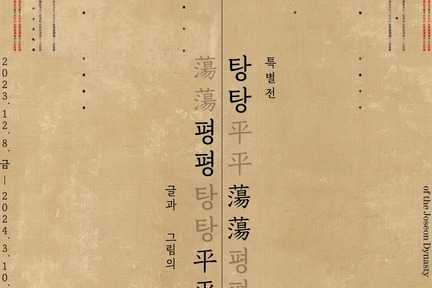 특별전
탕탕平平蕩蕩평
蕩蕩평평탕탕平平
글과 그림의
2023. 12. 8. 금 — 2024. 3. 10.
of the Joseon Dynasty